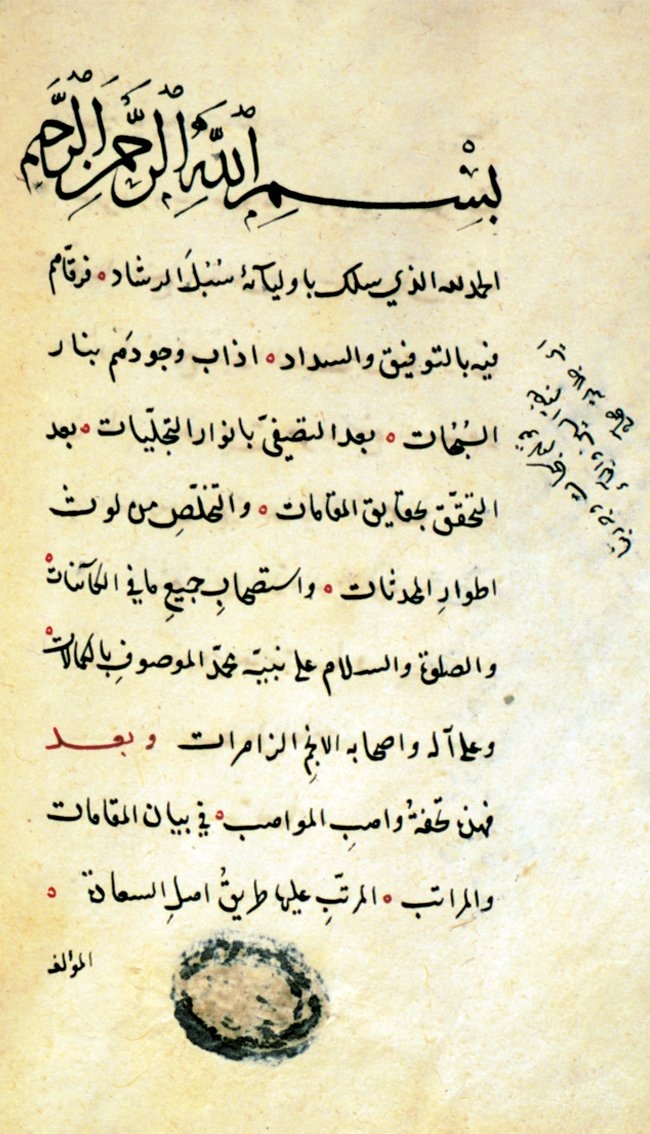 بِسْمِ اللّٰهِ الرَّحْمٰنِ الرَّحِيمِ
الحمد لله الذي سلك باوليآئه سُبُلَ الرشاد ه فرقّاهم
فيه بالتوفيق والسداد ه اذاب وجودهم بنار
السُبُحات ه بعد التصفيّ بانوار التجلّيات ه بعد
التحقّق بحقايق المقامات ه والتخلّصِ من لوث
اطوارِ المحدثات ه واستصحابِ جميعِ ما في الكآئنات ه
والصلوة والسلام على نبيّه محمّد الموصوفِ بالكمالات ه
وعلى آله واصحابه الانجمِ الزاهرات وبعد
فهذه تحفةُ واهبِ المواهب ه في بيان المقامات
والمراتب ه المرتّبِ عليها طريقُ اهلِ السعادة ه
المؤلفه